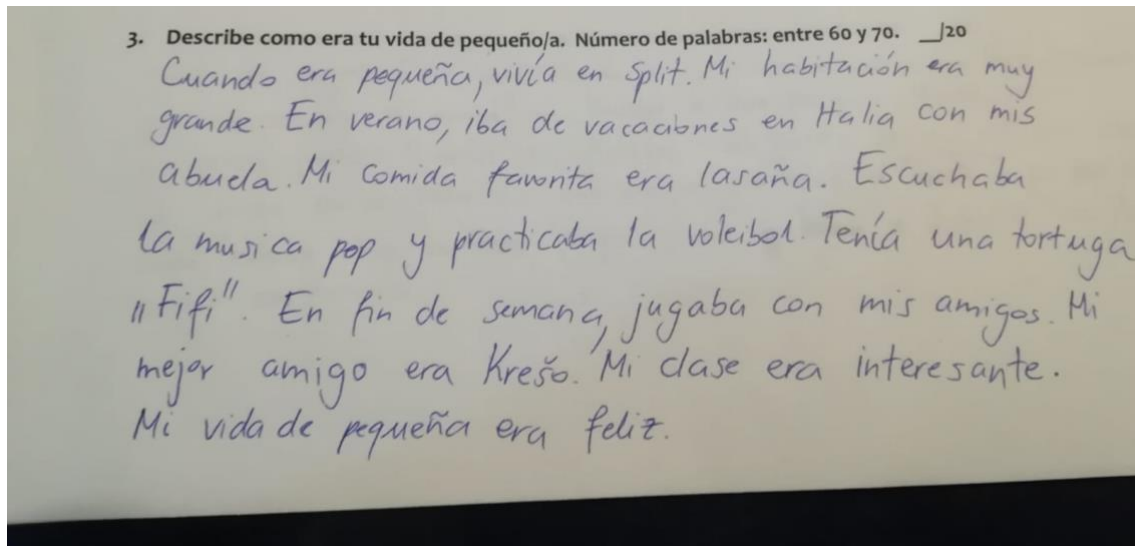 3. Describe como era tu vida de pequeño/a. Número de palabras: entre 60 y 70. __/20
Cuando era pequeña, vivía en Split. Mi habitación era muy
grande. En verano, iba de vacaciones en Italia con mis
abuela. Mi comida favorita era lasaña. Escuchaba
la musica pop y practicaba la voleibol. Tenía una tortuga
„Fifi". En fin de semana, jugaba con mis amigos. Mi
mejor amigo era Krešo. Mi clase era interesante.
Mi vida de pequeña era feliz.